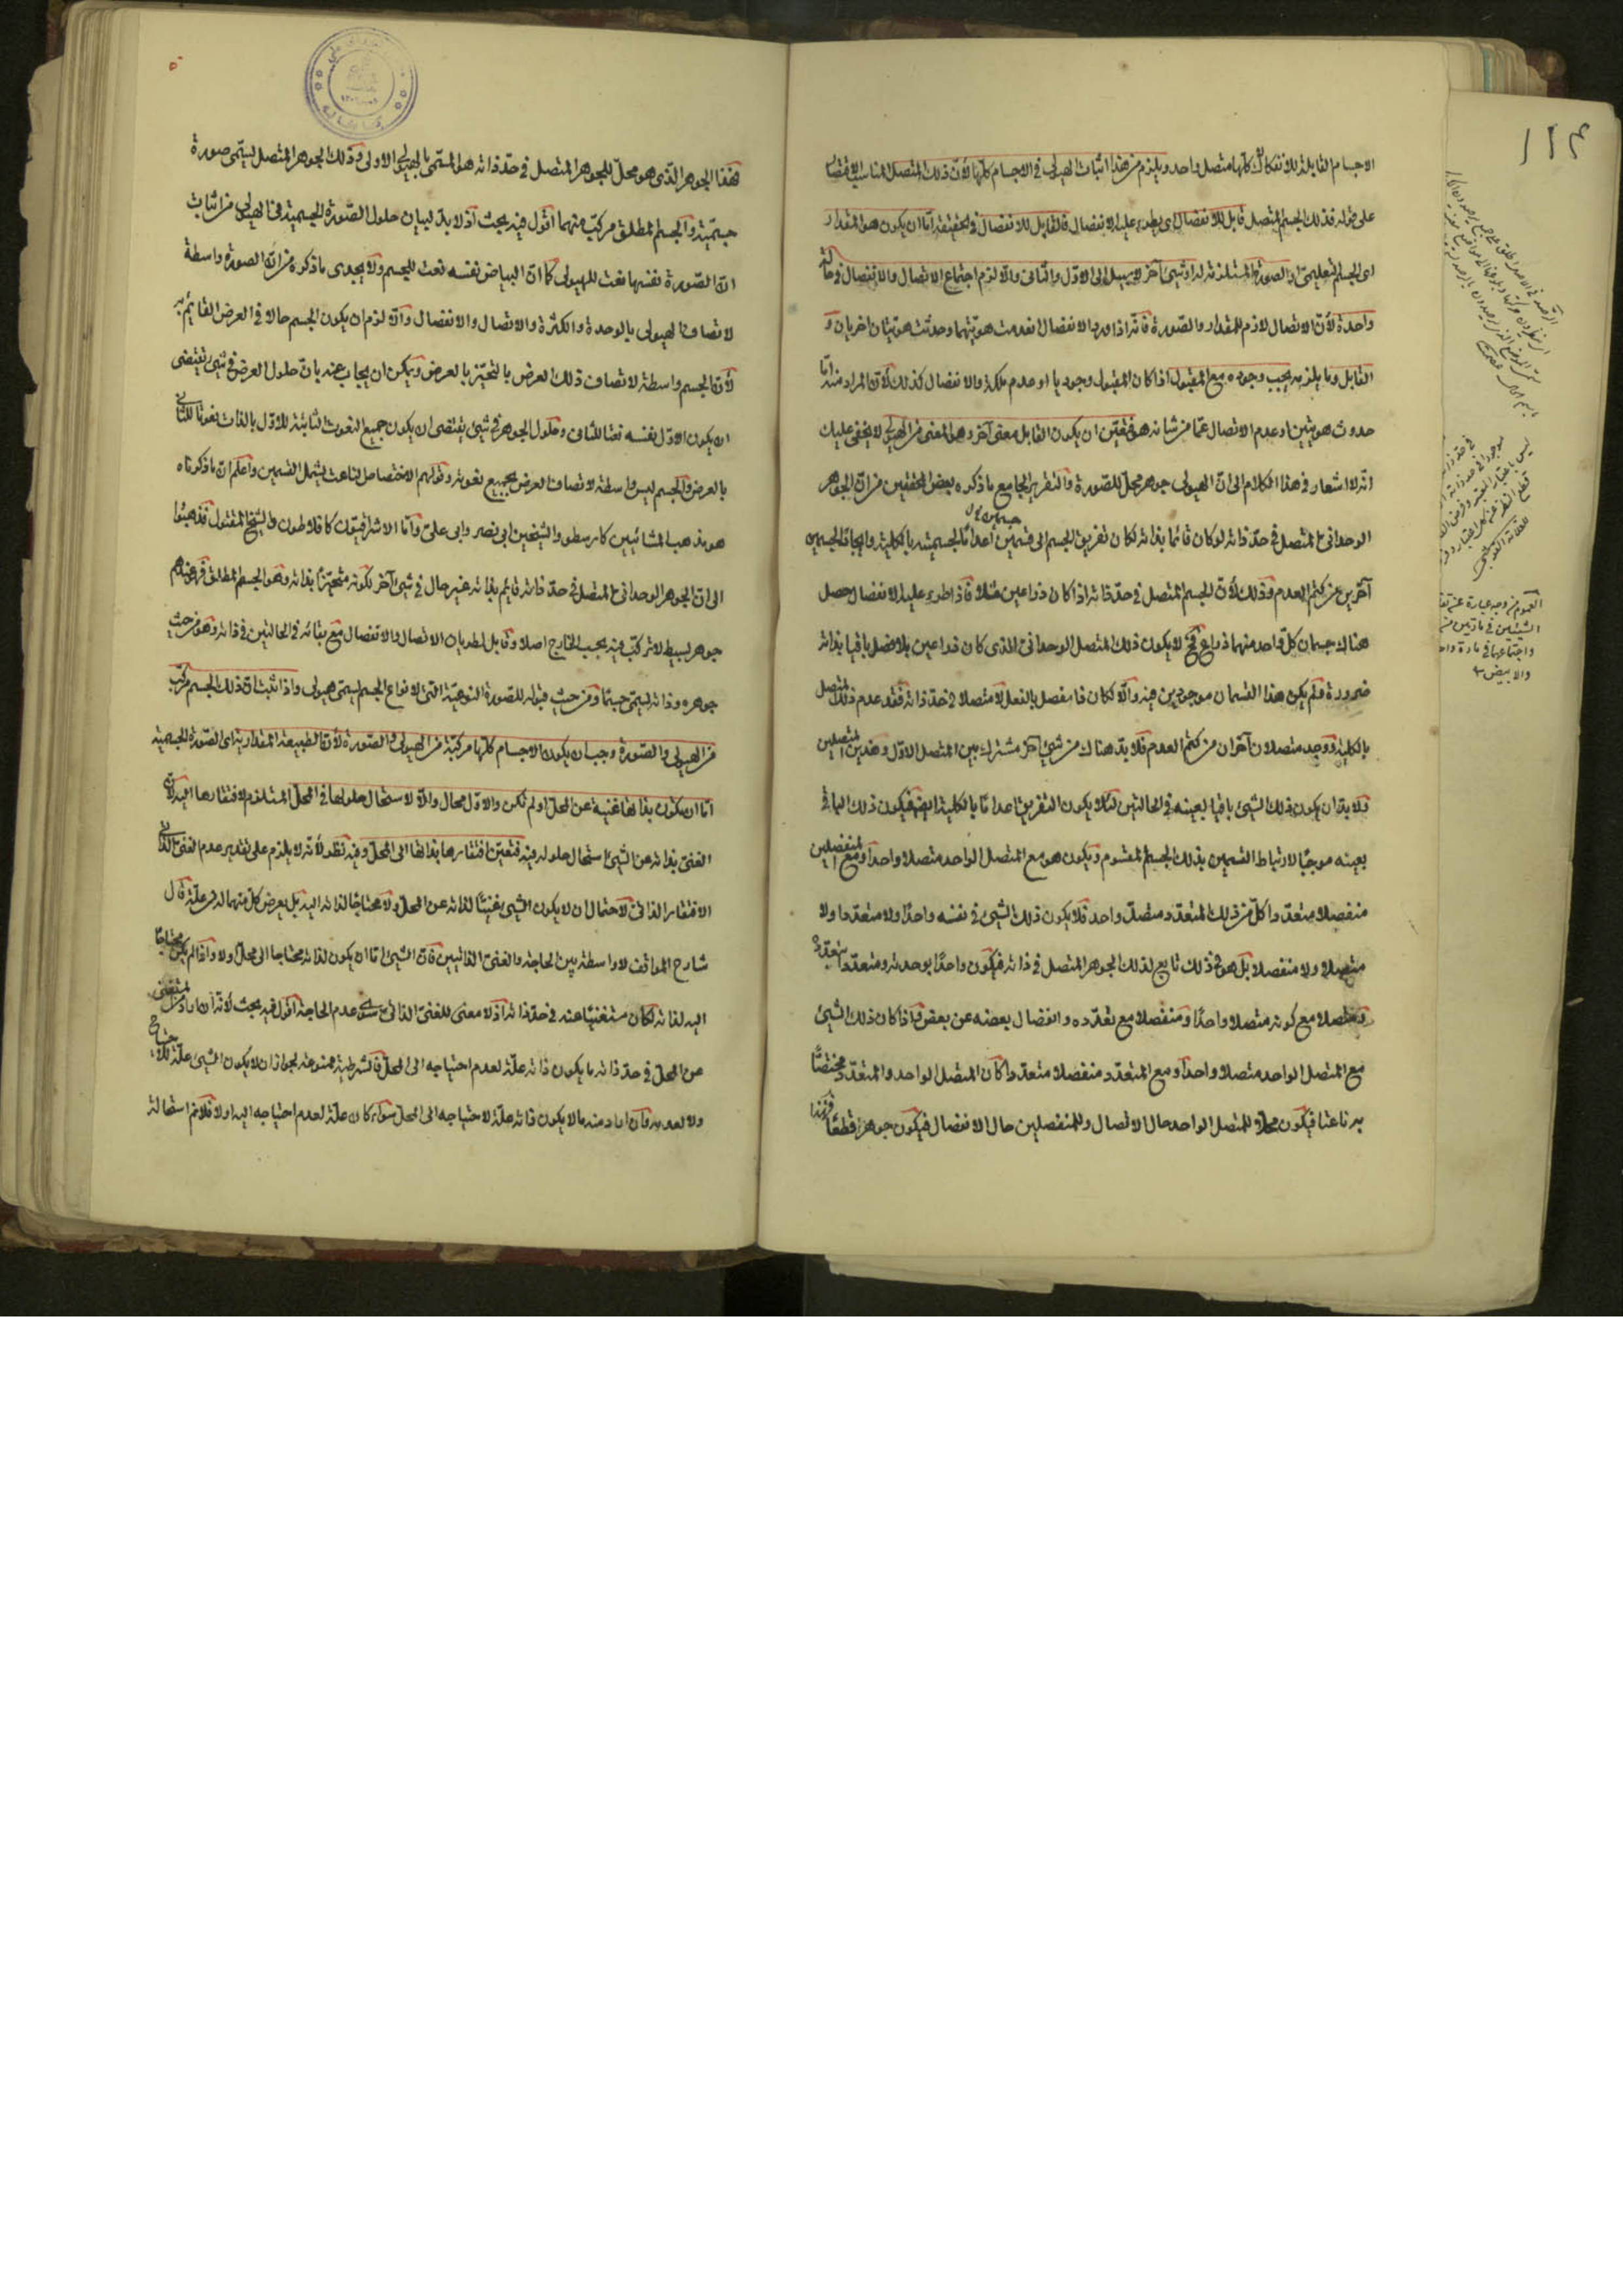 الاجسام القابلة للانفكاك كلها متصل واحد ويلزم من هذا اثبات الهيولى في الاجسام كلها لأن ذلك المتصل
على قوله فذلك الجسم المتصل قابل للانفصال اى يطرء عليه الانفصال فالقابل للانفصال في الحقيقة اما ان يكون هو المقدار
اى الجسم التعليمى او الصورة المستلزمة له او شيئ آخر لا سبيل الى الاول والثانى والا لزم اجتماع الاتصال والانفصال في حالة
واحدة لأن الاتصال لازم للمقدار والصورة فانه اذا ورد الانفصال انعدمت هويتهما وحدثت هويتان اخريان و
القابل وما يلزمه يجب وجوده مع المقبول اذا كان المقبول وجوديا او عدم ملكة والانفصال كذلك لأن المراد منه اما
حدوث هويتين او عدم الاتصال عما من شانه هو فتعين ان يكون القابل معنى آخر وهو المعنى من الهيولى لا يخفى عليك
انه لا اشعار في هذا الكلام الى ان الهيولى جوهر محل للصورة والتقرير الجامع ما ذكره بعض المحققين من ان الجوهر
الوحدانى المتصل في حد ذاته لو كان قائما بذاته لكان تفريق الجسم الى قسمين اعداما لجسميته بالكلية وايجادا لجسمين
آخرين عن كتم العدم وذلك لأن الجسم المتصل في حد ذاته اذا كان ذراعين مثلا فاذا طرء عليه الانفصال حصل
هناك جسمان كل واحد منهما ذراع فح لا يكون ذلك المتصل الوحدانى الذى كان ذراعين بلا فصل باقيا بذاته
ضرورة ولم يكن هذا القسمان موجودين فيه والا لكان ذا مفصل بالفعل لا متصلا في حد ذاته فقد عدم ذلك المتصل
بالكلية ووجد متصلان آخران من كتم العدم فلا بد هناك من شيئ آخر مشترك بين المتصل الاول وهذين المتصلين
ولا بد ان يكون ذلك الشيئ باقيا بعينه في الحالتين لئلا يكون التفريق اعداما بالكلية ايضا فيكون ذلك الباقى
بعينه موجبا لارتباط القسمين بذلك الجسم المقسوم ويكون هو مع المتصل الواحد متصلا واحدا ومع المنفصلين
منفصلا متعددا كل من ذلك المتعدد متصل واحد فلا يكون ذلك الشيئ في نفسه واحدا ولا متعددا ولا
متصلا ولا منفصلا بل هو في ذلك تابع لذلك الجوهر المتصل في ذاته فيكون واحدا بوحدته ومتعددا بتعدده
ومتصلا مع كونه متصلا واحدا ومنفصلا مع تعدده وانفصال بعضه عن بعض فاذا كان ذلك الشيئ
مع المتصل الواحد متصلا واحدا ومع المتعدد منفصلا متعددا كان المتصل الواحد والمتعدد مختصا
به ناعتا فيكون محلا للمتصل الواحد حال الاتصال وللمنفصلين حال الانفصال فيكون جوهرا قطعا
فهذا الجوهر الذى هو محل للجوهر المتصل في حد ذاته هو المسمى بالهيولى الاولى وذلك الجوهر المتصل ليسمى صورة
جسمية والجسم المطلق مركب منهما اقول فيه بحث اذ لا بد لبيان حلول الصورة الجسمية في الهيولى من اثبات
ان الصورة نفسها نعت للهيولى كما ان البياض نفسه نعت للجسم ولا يجدى ما ذكره من ان الصورة واسطة
لاتصاف الهيولى بالوحدة والكثرة والاتصال والانفصال والا لزم ان يكون الجسم حالا في العرض القائم به
لأن الجسم واسطة لاتصاف ذلك العرض بالتحيز بالعرض ويمكن ان يجاب عنه بان حلول العرض في شيئ يقتضى
ان يكون الاول نفسه نعتا للثانى وحلول الجوهر في شيئ يقتضى ان يكون جميع النعوت الثابتة للاول بالذات نعوتا للثانى
بالعرض والجسم ليس واسطة لاتصاف العرض بجميع نعوته وقولهم الاختصاص الناعت يشمل القسمين واعلم ان ما ذكرناه
هو مذهب المشائيين كارسطو والشيخين ابى نصر وابى على واما الاشراقيون كافلاطون والشيخ المقتول فذهبوا
الى ان الجوهر الوحدانى المتصل في حد ذاته قائم بذاته غير حال في شيئ آخر لكونه متحيزا بذاته وهو الجسم المطلق فهو عندهم
جوهر بسيط لا تركيب فيه بحسب الخارج اصلا وقابل لطريان الاتصال والانفصال مع بقائه في الحالتين في ذاته وهو من حيث
جوهره وذاته ليسمى جسما ومن حيث قبوله للصورة النوعية التى لانواع الجسم ليسمى هيولى واذا ثبت ان ذلك الجسم مركب
من الهيولى والصورة وجب ان يكون الاجسام كلها مركبة من الهيولى والصورة لأن الطبيعة المقدارية اى الصورة الجسمية
اما ان يكون بذاتها غنية عن المحل او لم تكن والاول محال والا لاستحال حلولها في المحل المستلزم لافتقارها اليه لأن
الغنى بذاته عن الشيئ استحال حلوله فيه فتعين افتقارها بذاتها الى المحل وفيه نظر لأنه لا يلزم على تقدير عدم الغنى الذاتى
الافتقار الذاتى لاحتمال ان لا يكون الشيئ غنيا لذاته عن المحل ولا محتاجا لذاته اليه بل يعرض كل منهما له من علة قال
شارح المواقف لا واسطة بين الحاجة والغنى الذاتيين فان الشيئ اما ان يكون لذاته محتاجا الى محل ولا واذا لم يكن محتاجا
اليه لذاته لكان مستغنيا عنه في حد ذاته اذ لا معنى للغنى الذاتى سوى عدم الحاجة اقول فيه بحث لأنه ان اراد من المستغنى
عن المحل في حد ذاته ما يكون ذاته علة لعدم احتياجه الى المحل فالشرطية ممنوعة لجواز ان لا يكون الشيئ علة
ولا لعدمه وان اراد منه ما لا يكون ذاته علة لاحتياجه الى المحل سواء كان علة لعدم احتياجه اليه اولا فلا نم استحالة
العموم من وجه عبارة عن
الشيئين في مادتين
واجتماعهما في مادة
والابيض